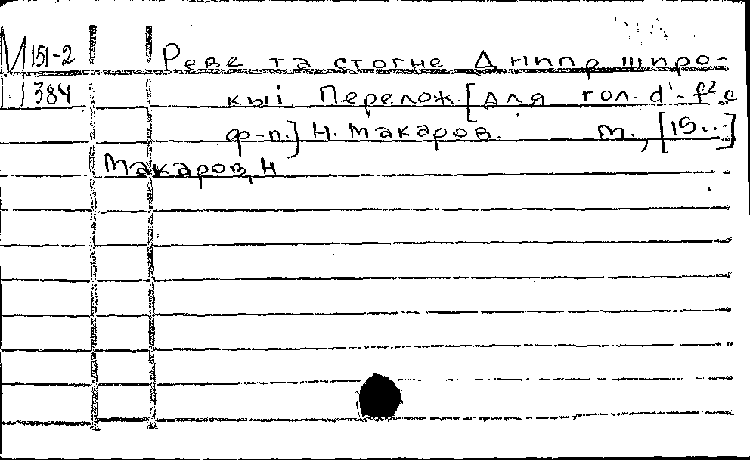 М 151-2 Реве та стогне Дніпр широ-
384 кыі Перелож. [для гол. d'-f² с
ф-п.] Н. Макаров. м., [15...]
Макаров, Н